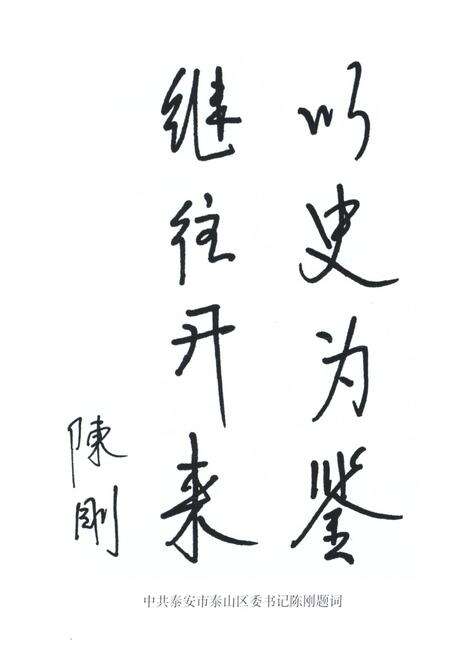 以史为鉴
继往开来
陳刚
中共泰安市泰山区委书记陈刚题词